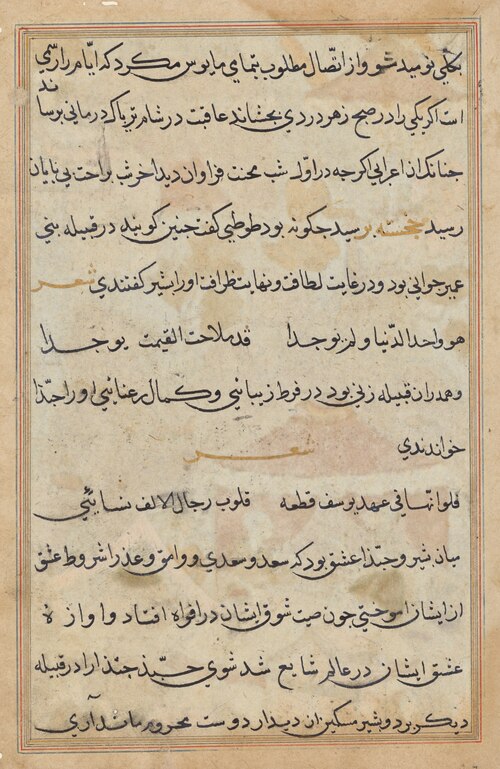 بکلی نومید مشو و از اتصال مطلوب بتمامی مایوس مکرد که ایام را رسمی
است اکر یکی را در صبح زهر دردی بچشاند عاقبت در شام تریاک درمانی برساند
چنانک ان اعرابی اکرچه در اول شب محنت فراوان دید اخر شب براحت بی پایان
رسید خجسته پرسید چکونه بود طوطی کفت چنین کویند در قبیله بنی
عمیر جوانی بود و در غایت لطافت و نهایت ظرافت او را بشیر کفتندی شعر
هو واحد الدنیا و لم یوجدا قد ملاحت القیمت یوجدا
و هم دران قبیله زنی بود در فرط زیبائی و کمال رعنائی او را جندا
خواندندی شعر
فلو انها فی عهد یوسف قطعه قلوب رجال لا الف نسائی
میان بشیر و جندا عشق بود که سعد و سعدی و وامق و عذرا شروط عشق
از ایشان اموختی چون صیت شوق ایشان در افواه افتاد و اوازه
عشق ایشان در عالم شایع شد شوی جندا جندا را در قبیله
دیکر برد و بشیر مسکین از دیدار دوست محروم ماند اری